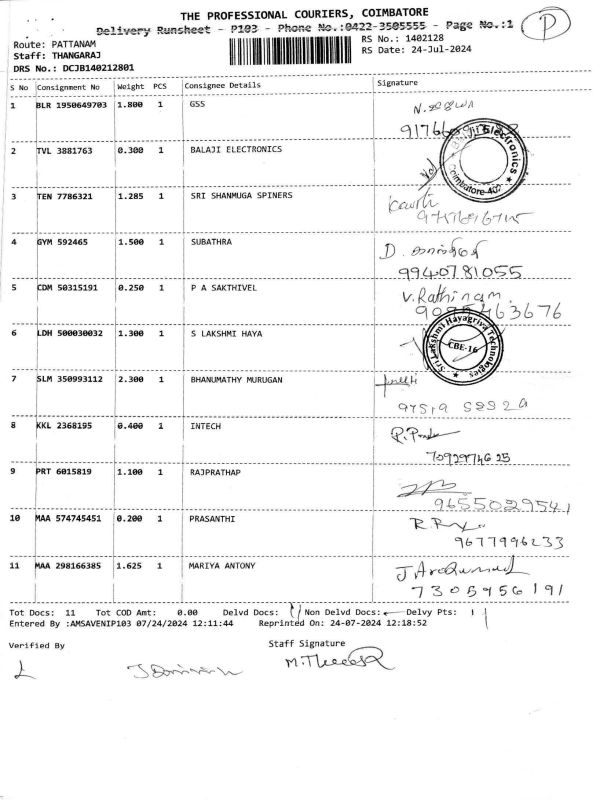 THE PROFESSIONAL COURIERS, COIMBATORE
Delivery Runsheet - P103 - Phone No.:0422-3505555 - Page No.:1
P
Route: PATTANAM
RS No.: 1402128
Staff: THANGARAJ
RS Date: 24-Jul-2024
DRS No.: DCJB140212801
S No Consignment No Weight PCS Consignee Details Signature
1 BLR 1950649703 1.800 1 GSS
2 TVL 3881763 0.300 1 BALAJI ELECTRONICS
Electronics
Coimbatore
3 TEN 7786321 1.285 1 SRI SHANMUGA SPINERS
4 GYM 592465 1.500 1 SUBATHRA
D.
9940781055
5 CDM 50315191 0.250 1 P A SAKTHIVEL
V. Rathinam
6 LDH 500030032 1.300 1 S LAKSHMI HAYA
Sri Lakshmi Hayagriva Technologies
CBE-16
7 SLM 350993112 2.300 1 BHANUMATHY MURUGAN
8 KKL 2368195 0.400 1 INTECH
7092974625
9 PRT 6015819 1.100 1 RAJPRATHAP
9655029541
10 MAA 574745451 0.200 1 PRASANTHI
9677996233
11 MAA 298166385 1.625 1 MARIYA ANTONY
7305956191
Tot Docs: 11 Tot COD Amt: 0.00 Delvd Docs: 11 Non Delvd Docs: Delvy Pts:
Entered By :AMSAVENIP103 07/24/2024 12:11:44 Reprinted On: 24-07-2024 12:18:52
Verified By
Staff Signature